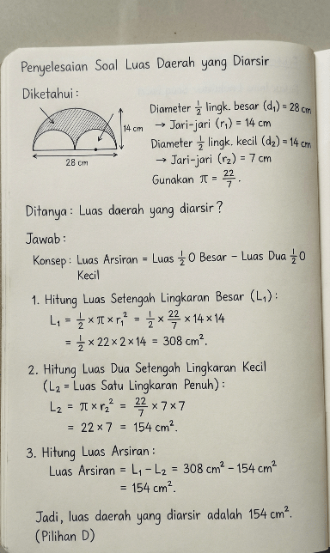 Penyelesaian Soal Luas Daerah yang Diarsir
Diketahui:
14 cm
28 cm
Diameter 1/2 lingk. besar (d₁) = 28 cm
→ Jari-jari (r₁) = 14 cm
Diameter 1/2 lingk. kecil (d₂) = 14 cm
→ Jari-jari (r₂) = 7 cm
Gunakan π = 22/7.
Ditanya: Luas daerah yang diarsir?
Jawab:
Konsep: Luas Arsiran = Luas 1/2 O Besar - Luas Dua 1/2 O
Kecil
1. Hitung Luas Setengah Lingkaran Besar (L₁):
L₁ = 1/2 × π × r₁² = 1/2 × 22/7 × 14 × 14
= 1/2 × 22 × 2 × 14 = 308 cm².
2. Hitung Luas Dua Setengah Lingkaran Kecil
(L₂ = Luas Satu Lingkaran Penuh):
L₂ = π × r₂² = 22/7 × 7 × 7
= 22 × 7 = 154 cm².
3. Hitung Luas Arsiran:
Luas Arsiran = L₁ - L₂ = 308 cm² - 154 cm²
= 154 cm².
Jadi, luas daerah yang diarsir adalah 154 cm².
(Pilihan D)